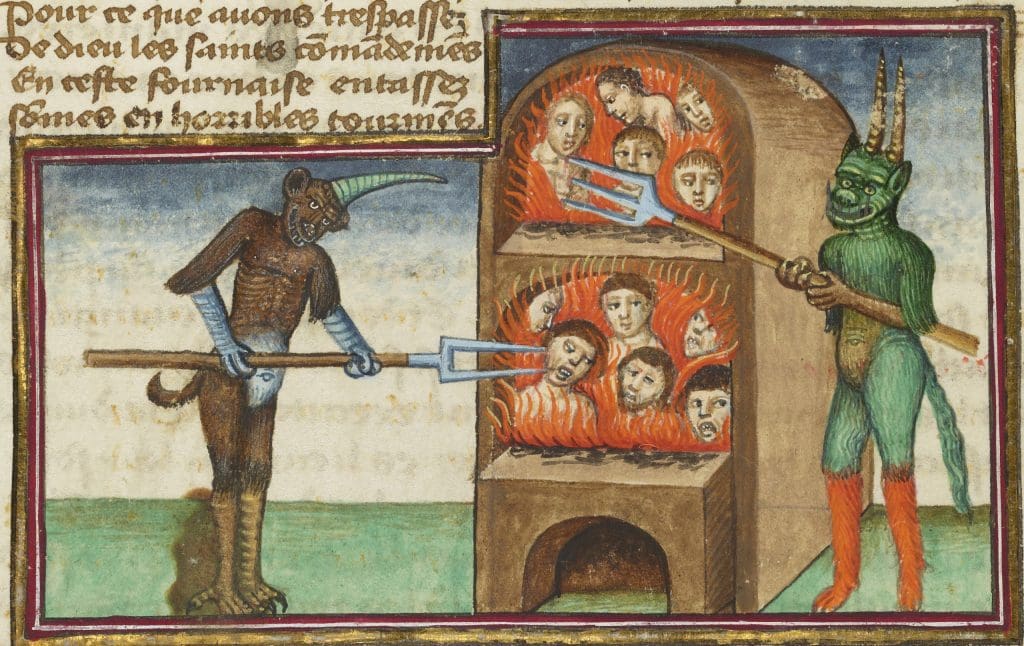 Pour ce que auons trespassez
De dieu les saints cõmãdemẽs
En ceste fournaise entassez
Sõmes en horribles tourmẽs